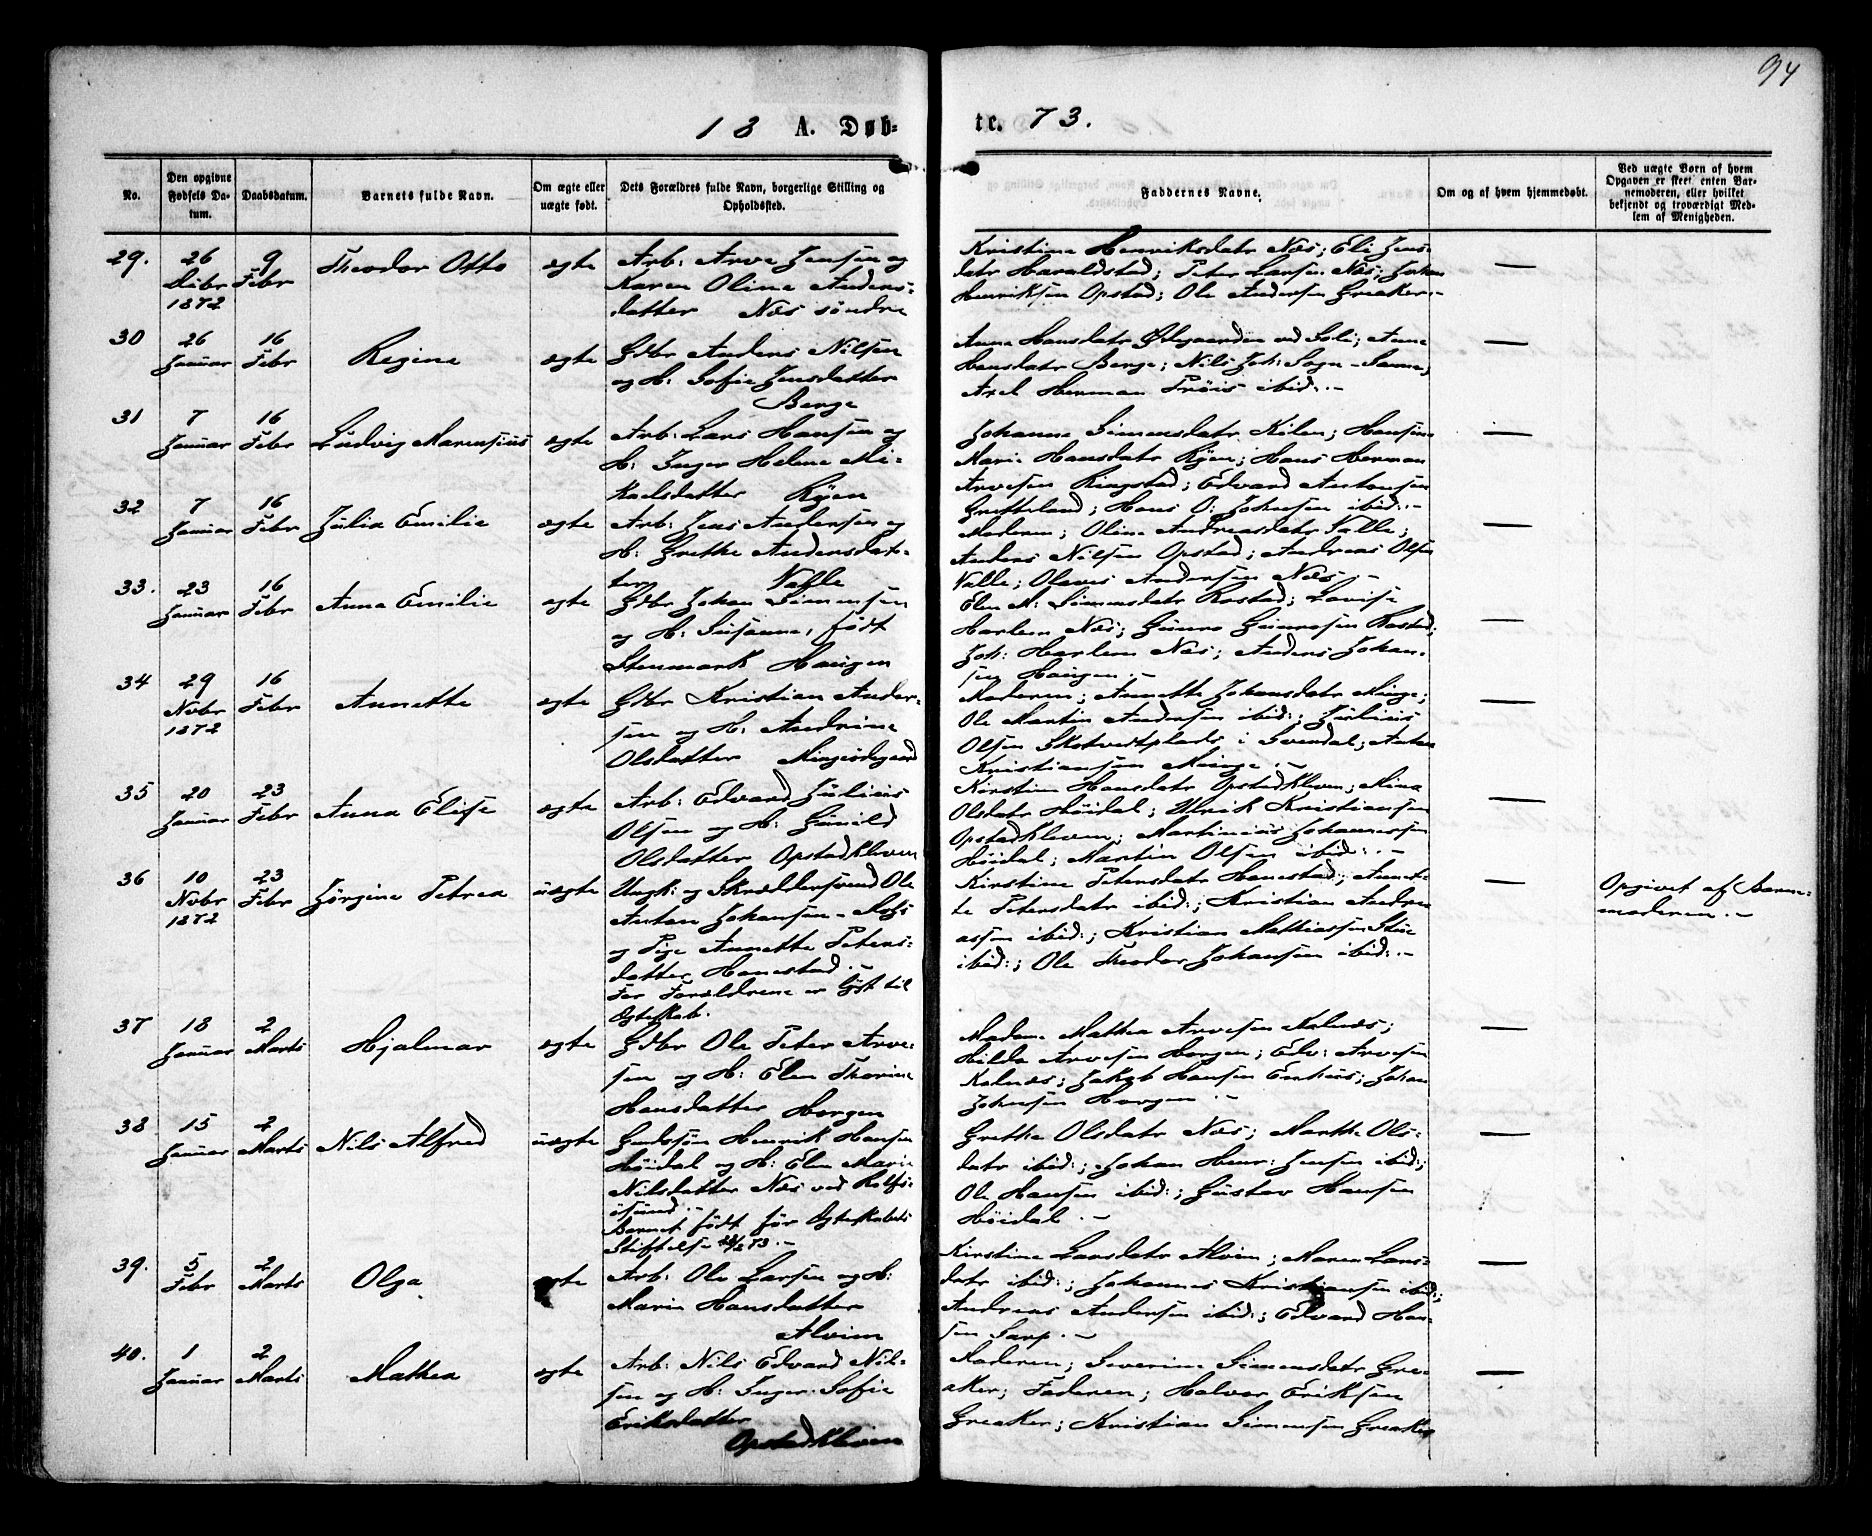 94
18 A. Døb-
te. 73.
No.
Den opgivne Fødsels Da-
tum.
Daabsdatum.
Barnets fulde Navn.
Om ægte eller
uægte født.
Dets Forældres fulde Navn, borgerlige Stilling og
Opholdssted.
Faddernes Navne.
Om og af hvem hjemmedøbt.
Ved uægte Børn af hvem
Opgaven er skeet, enten Bar-
nemoderen, eller hvilket
bekjendt og troværdigt Med-
lem af Menigheden.
29. 26 Debr 1872 9 Febr Theodor Otto ægte
Arb: Arve Jensen og
Karen Oline Anders-
datter Næs søndre
Kristine Henriksdatr Næs; Eli Jens-
datr Haraldstad; Peter Larsen Næs; Johan
Henriksen Opstad; Ole Andersen Greaker.-
30 26 Januar 16 Febr Regine ægte
Gdbr Anders Nilsen
og H: Sofie Jensdatter
Berge
Anna Hansdatr Ødegaarden ved Soli; Anne
Hansdatr Berge; Nils Joh: Sogn-Sanne;
Axel Herman Frøis ibid:.-
31 7 Januar 16 Febr Ludvig Marensius ægte
Arb: Lars Hansen og
H: Inger Helene Mi-
kaelsdatter Ryen
Johanne Simensdatr Kilen; Hansine
Marie Hansdatr Ryen; Hans Herman
Arvesen Ringstad; Edvard Antonsen
Gretteland; Hans O: Johnsen ibid:.-
32 7 Januar 16 Febr Julia Emilie ægte
Arb: Jens Andersen og
H: Grethe Andersdat-
ter Valle
Moderen; Oline Andreasdatr Valle;
Anders Nilsen Opstad; Andreas Olsen
Valle; Olaves Andersen Næs.-
33. 23 Januar 16 Febr Anna Emilie ægte
Gdbr Johan Simensen
og H: Susanne, født
Stenmark Haugen
Elen M: Simensdatr Rostad; Lovise
Harlem Næs; Gunro Gunrosen Rostad;
Joh: Harlem Næs; Anders Johan-
sen Haugen.-
34 29 Nobr 1872 16 Febr Annette ægte
Gdbr Kristian Ander-
sen og H: Andrine
Olsdatter Mingeødegaard
Moderen; Annette Johansdatr Minge;
Ole Martin Andersen ibid:; Julius
Olsen Skotvedtplads i Svendal; Anton
Kristiansen Minge.-
35 20 Januar 23 Febr Anna Elise ægte
Arb: Edvard Julius
Olsen og H: Gunild
Olsdatter Opstadkleven
Kirstine Hansdatr Opstadkleven; Mina
Olsdatr Høidal; Ulrik Kristiansen
Opstadkleven; Martinius Johannessen
Høidal; Martin Olsen ibid:.-
36 10 Nobr 1872 23 Febr Jørgine Petrea uægte
Ungk: og Skræddersvend Ole
Anton Johansen
og Pige Annette Peters-
datter Hanestad.-
For Forældrene er lyst til
Ægteskab.
Kirstine Petersdatr Hanestad; Annet-
te Petersdatr ibid:; Kristian Andre-
assen ibid:; Kristian Mathiassen
ibid:; Ole Theodor Johansen ibid:.-
Opgivet af Barne-
moderen.-
37 18 Januar 2 Marts Hjalmar ægte
Gdbr Ole Peter Arve-
sen og H: Elen Thorine
Hansdatter Horgen
Madam Mathea Arvesen Kalnæs;
Hilda Arvesen Horgen; Edv: Arvesen
Kalnæs; Jakob Hansen Enhus; Johan
Johnsen Horgen.-
38 15 Januar 2 Marts Nils Alfred uægte
Gaardssøn Henrik Hansen
Høidal og H: Elen Marie
Nilsdatter Næs ved Rolfs-
øsund.-
Barnet født før Ægteskabets
Stiftelse
Grethe Olsdatr Næs; Marthe Ols-
datr ibid:; Johan Henr: Jensen ibid:;
Ole Hansen ibid:; Gustav Hansen
Høidal.-
39. 5 Febr 2 Marts Olga ægte
Arb: Ole Larsen og H:
Marie Hansdatter
Alvim
Kirstine Larsdatr Alvim; Maren Lars-
datr ibid:; Johannes Kristiansen ibid:;
Andreas Andersen ibid:; Edvard Han-
sen Sarp.-
40. 1 Januar 2 Marts Mathea ægte
Arb: Nils Edvard Nil-
sen og H: Inger Sofie
Eriksdatter
Opstadkleven
Moderen; Severine Simensdatr Gre-
aker; Faderen; Halvor Eriksen
Greaker; Kristian Simensen Greaker